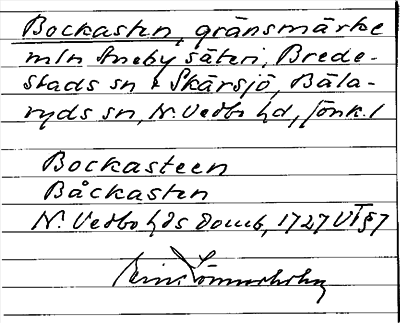 Bockasten, gränsmärke
mln Aneby säteri, Brede-
stads sn & Skärsjö, Bäla-
ryds sn, N. Vedbo hd, Jönk. l
Bockasteen
Båckasten
N. Vedbo hds domb, 1727 VI § 7